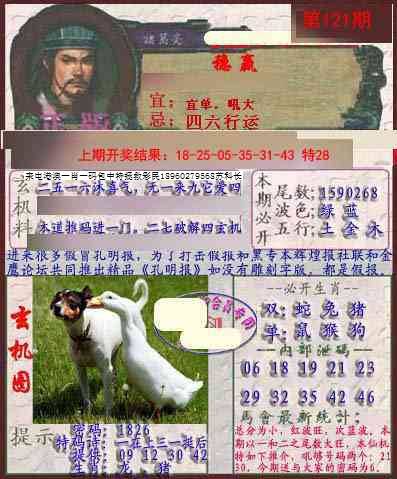 第121期
诸葛亮
稳赢
宜：宜单。吼大
忌：四六行运
上期开奖结果：18-25-05-35-31-43 特28
玄机料
来电港澳一肖一码包中特接救彩民18960279868苏科长
二五一六沐喜气，无一来九它爱四
朱道推码进一门，二七破解四玄机
本期必开
尾数;1590268
波色;绿 蓝
五行;土 金 木
近来很多假冒孔明报，为了打击假报和黑专本辉煌报社联和金
鹰论坛共同推出精品《孔明报》如没有雕刻字版，都是假报。
玄机图
会员专用
--必开生肖--
双：蛇 兔 猪
单：鼠 猴 狗
--内部泄码--
06 18 19 21 23
29 32 35 42 46
马會最新統計：
总分为小，红波旺，次蓝波，本
期以一和二之尾数大旺，本仙机
特如下推介，吼够号码两个：21
30，今期送与大家的密码为6。
提示
密码：1826
特码诗：一在十三一挺后
提供：09 12 30 42
生肖：龙、猪